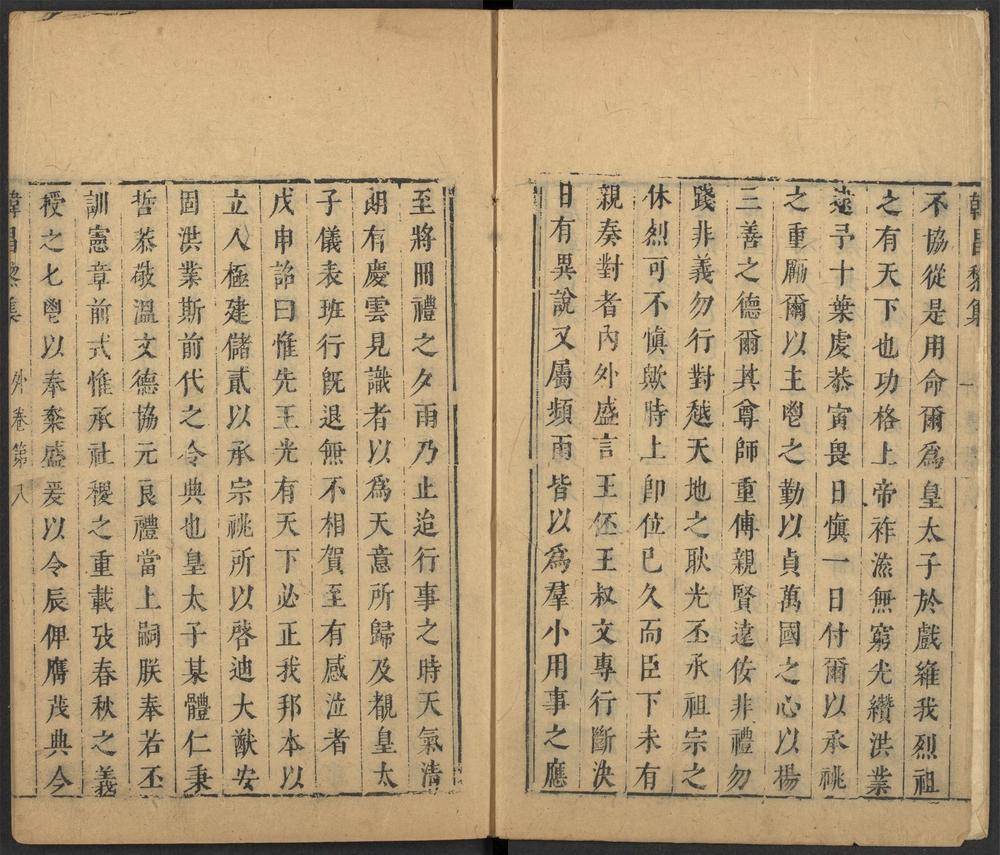 韓昌黎集
不協從是用命爾爲皇太子於戲維我烈祖
之有天下也功格上帝祚滋無窮光纘洪業
逮予十葉虔恭寅畏日愼一日付爾以承祧
之重勵爾以主鬯之勤以貞萬國之心以楊
三善之德爾其尊師重傅親賢遠佞非禮勿
踐非義勿行對越天地之耿光丕承祖宗之
休烈可不愼歟時上卽位已久而臣下未有
親奏對者內外盛言王伾王叔文專行斷決
日有異說又屬頻雨皆以爲羣小用事之應
至將冊禮之夕雨乃止迨行事之時天氣清
朗有慶雲見識者以爲天意所歸及覩皇太
子儀表班行旣退無不相賀至有感泣者
戊申詔曰惟先王光有天下必正我邦本以
立人極建儲貳以承宗祧所以啓迪大猷安
固洪業斯前代之令典也皇太子某體仁秉
哲恭敬溫文德協元良禮當上嗣朕奉若丕
訓憲章前式惟承社稷之重載攷春秋之義
授之匕鬯以奉粢盛爰以令辰俾膺茂典今
韓昌黎集 外卷第八